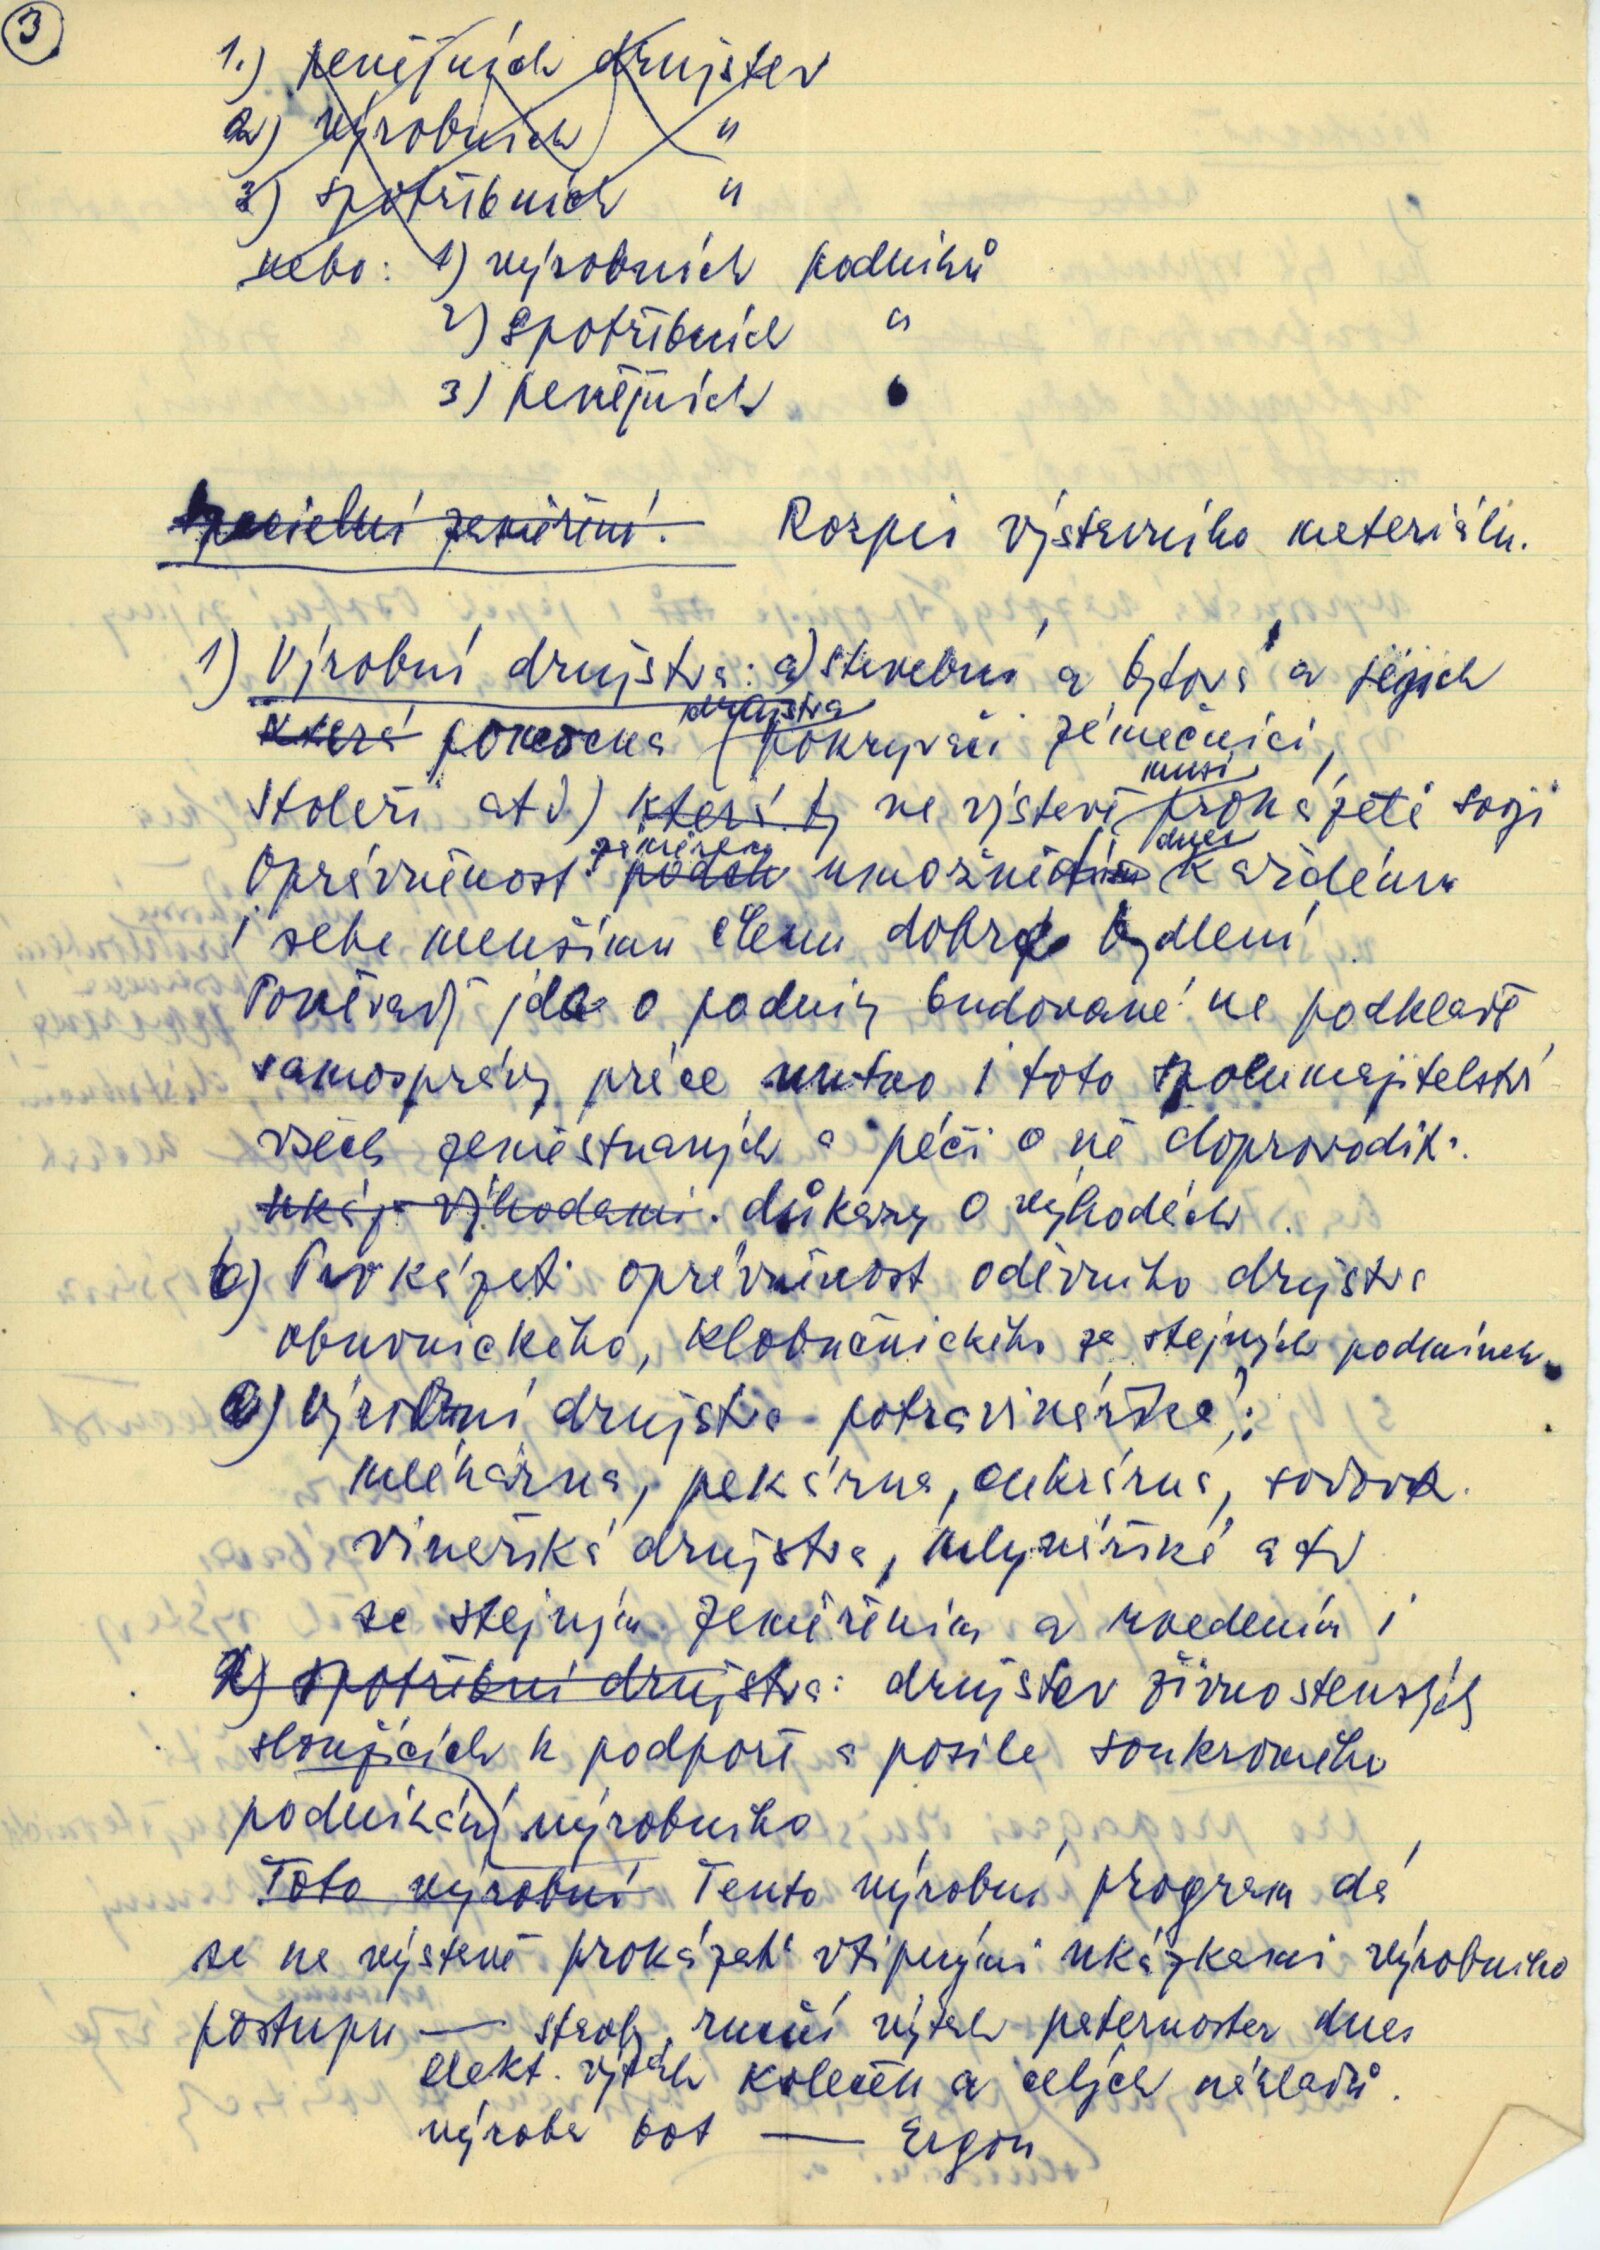 3
1.) peněžních družstev
2) výrobních "
3) spotřebních "
nebo: 1) výrobních podniků
2) spotřebních "
3) peněžních
specielní zaměření. Rozpis výstavního materiálu.
1) Výrobní družstva: a) stavební a bytová a jejich
která pomocná družstva (pokryvači zámečníci,
stoleři atd) která by na výstavě musí prokázati svoji
oprávněnost zaměřenou umožniti dnes každému
i sebe menšímu členu dobré bydlení
Poněvadž jde o podniky budované na podkladě
samosprávy práce nutno i toto spolumajitelství
všech zaměstnaných a péči o ně doprovoditi
výhodami. důkazy o výhodách.
b) Prokázati oprávněnost oděvního družstva
obuvnického, kloboučnického za stejných podmínek.
c) Výrobní družstva potravinářská:
mlékárna, pekárna, cukrárna, sodov.
vinařská družstva, mlynářské atd
se stejným zaměřením a uvedením i
2) spotřební družstva: družstev živnostenských
sloužících k podpoře a posile soukromého
podnikání výrobního
Toto výrobní Tento výrobní program dá
se na výstavě prokázati vtipnými ukázkami výrobního
postupu — stavby, ruční výtah paternoster dnes
elekt. výtah koleček a celých nákladů.
výroba bot — Ergon